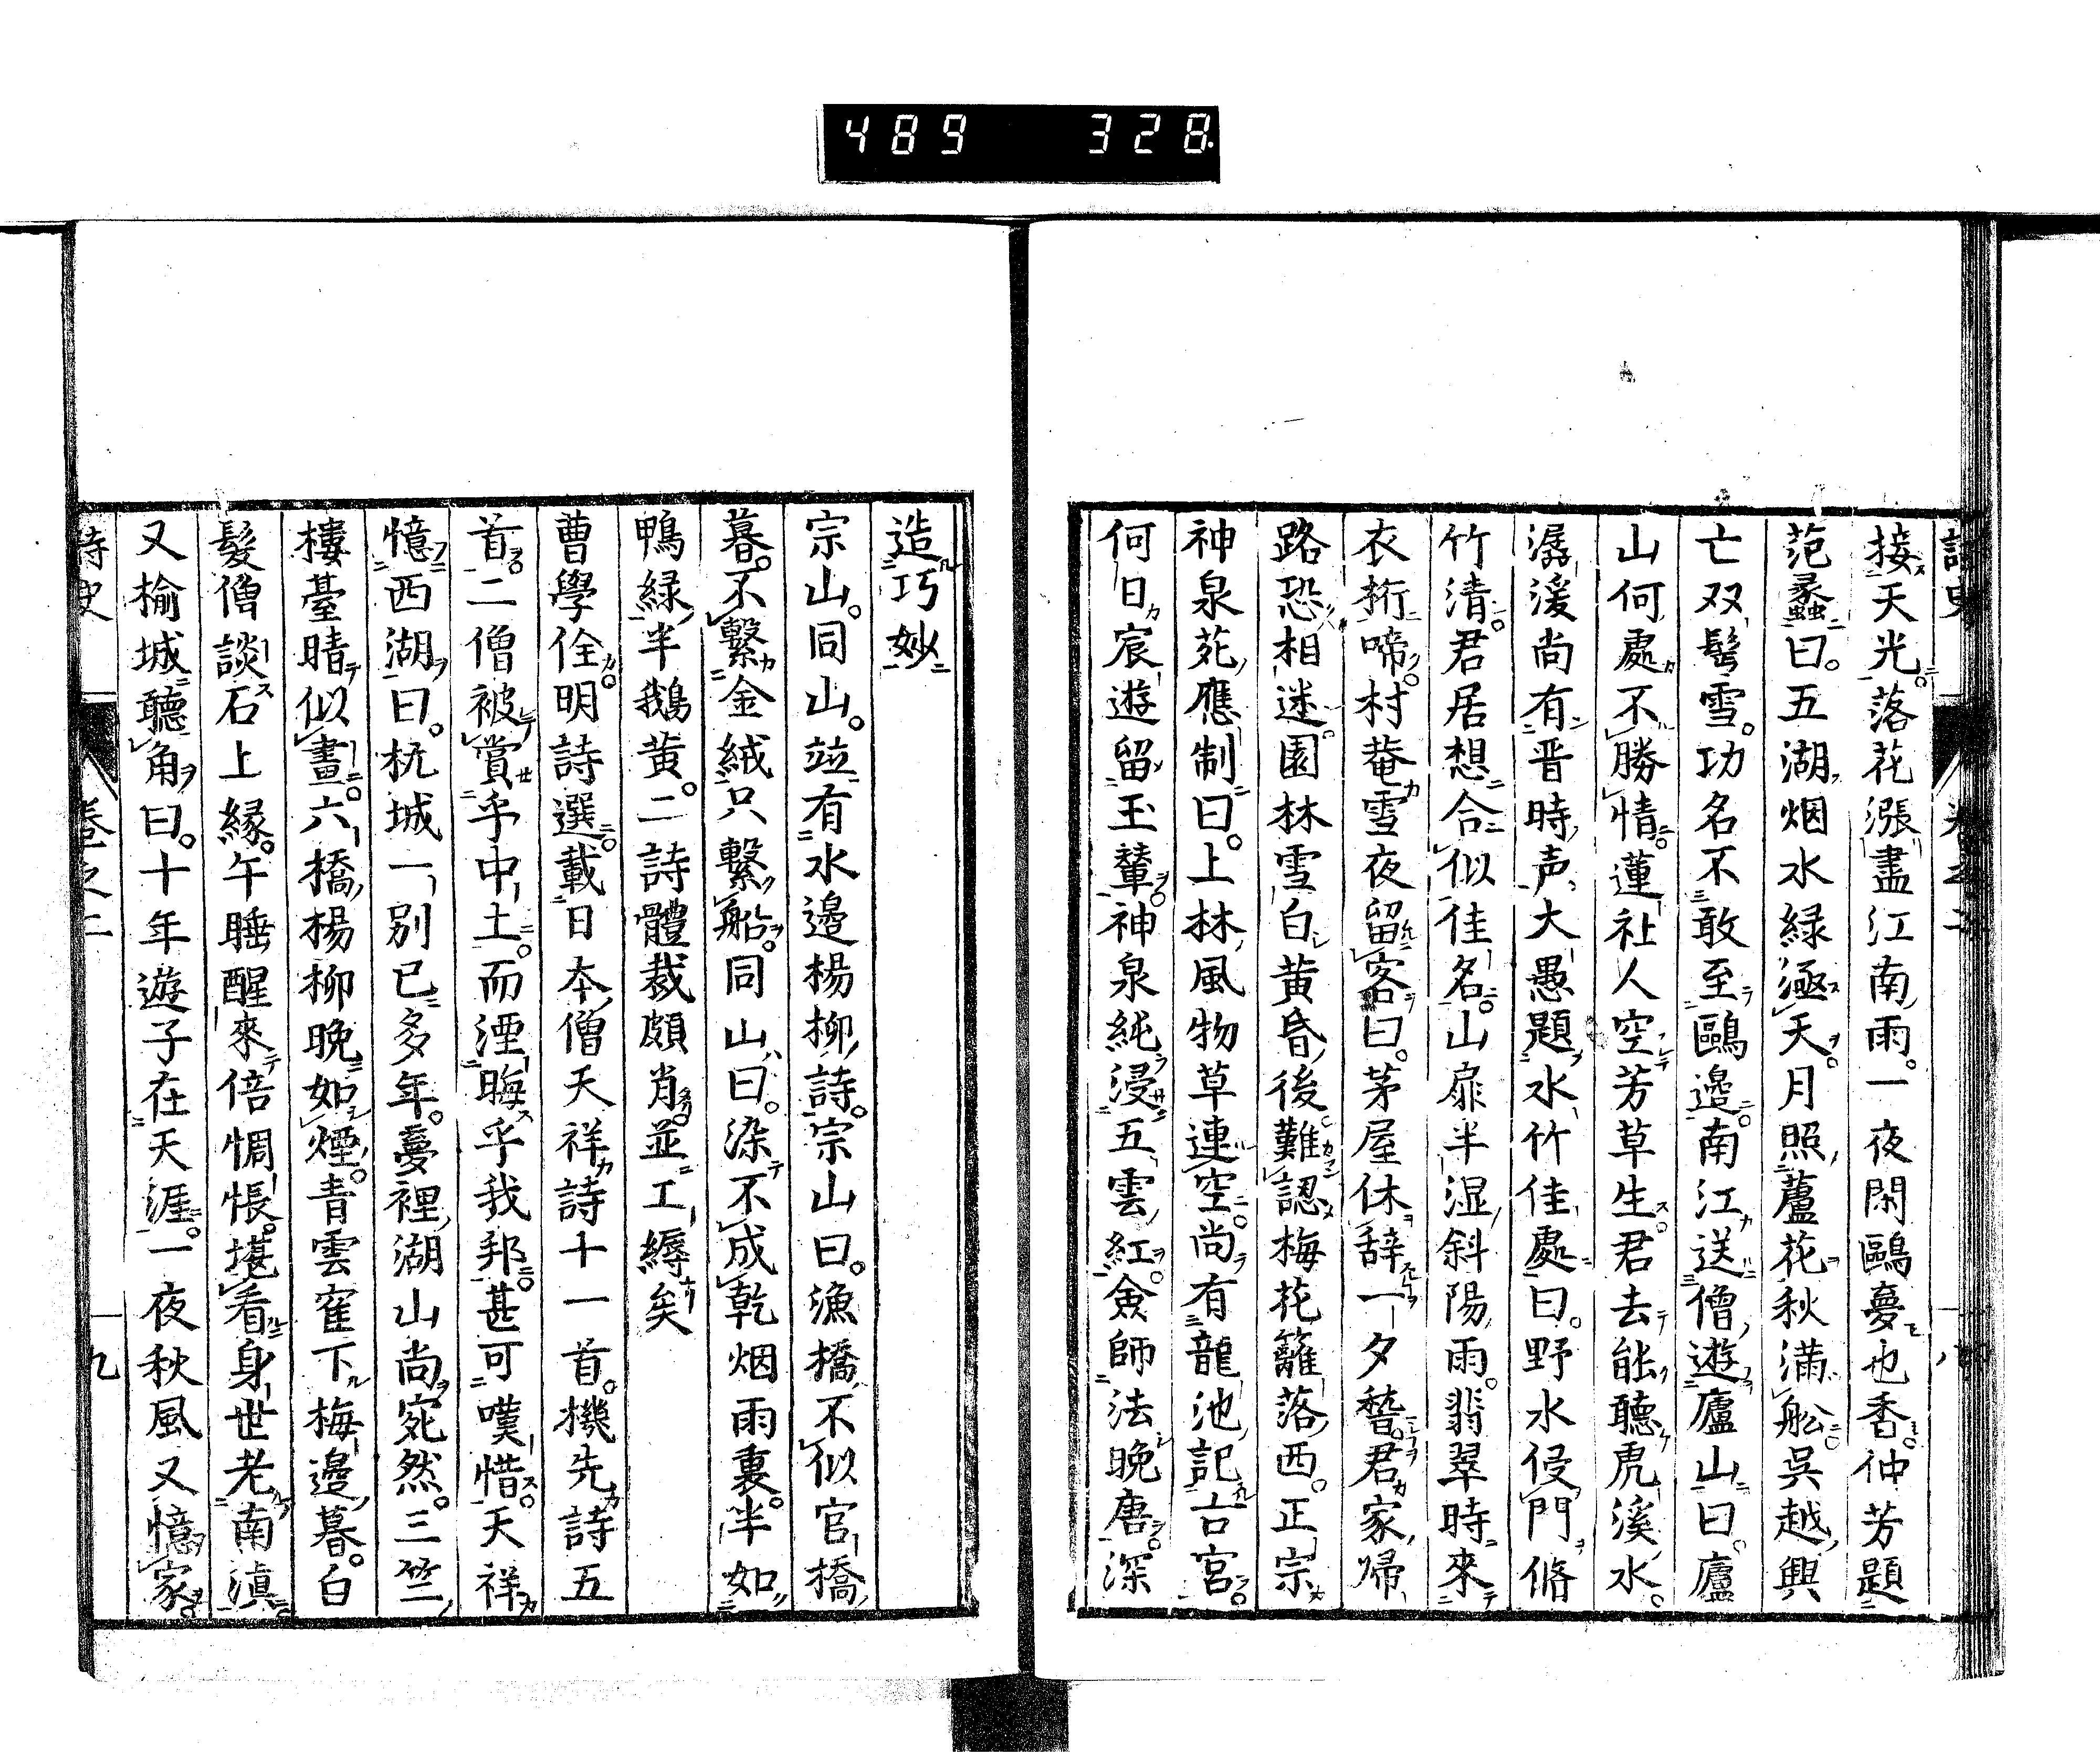 489 328
接天光落花漲盡江南雨。一夜閑鷗夢也香仲芳題
范蠡曰。五湖烟水緑涵天月照蘆花秋滿舩吳越興
亡双髩雪。功名不敢至鷗邊南江送僧遊廬山曰。廬
山何處不勝情蓮社人空芳草生君去能聽虎溪水。
潺湲尚有晋時声大愚題水竹佳處曰。野水侵門脩
竹清君居想合似佳名山扉半湿斜陽雨。翡翠時來
衣桁啼村菴雪夜留客曰。茅屋休辞一夕整君家歸
路恐相迷園林雪白黄昏後難認梅花籬落西。正宗
神泉苑應制曰。上林風物草連空尚有龍池記古宮
何日宸遊留玉輦神泉純浸五雲紅僉師法晚唐深
造巧妙
宗山。同山。竝有水邊楊柳詩。宗山曰。漁橋不似官橋
暮。不繫金絨只繫船。同山曰。染不成乾烟雨裏。半如
鴨緑半鵝黄。二詩體裁頗肖並工縟矣
曹學佺明詩選載日本僧天祥詩十一首。機先詩五
首二僧被賞乎中土。而湮晦乎我邦甚可嘆惜天祥
憶西湖曰。杭城一別已多年。夢裡湖山尚宛然。三竺
樓臺晴似畫。六橋楊柳晚如煙。青雲寉下梅邊暮。白
髮僧談石上縁。午睡醒來倍惆悵。堪看身世老南滇
又榆城聽角曰。十年遊子在天涯。一夜秋風又憶家
詩史 卷之二 九